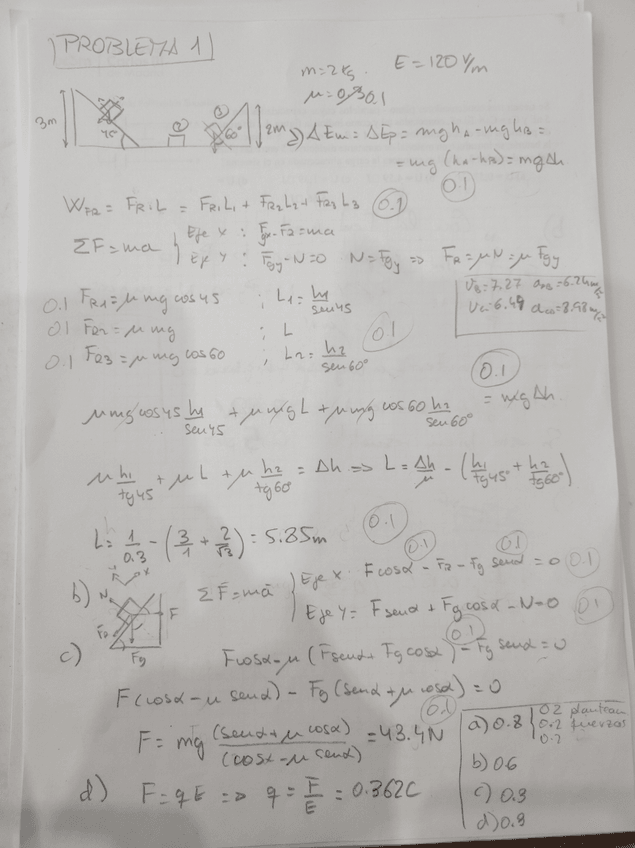 PROBLEMA 1
m=2 kg. E=120 V/m
μ=0.1
3m 45 ② ③ 60° 2m
a) ΔEm = ΔEp = mghA - mghB =
= mg (hA-hB) = mgΔh
0.1
WFR = FR·L = FR1L1 + FR2L2 + FR3L3 0.1
ΣF=ma { Eje X : Fgx-FR=ma
Eje Y : Fgy-N=0 N=Fgy => FR=μN=μFgy
VB=7.27
VC=6.49
0.1 FR1=μmg cos45 ; L1= h1/sen45
0.1 FR2=μmg ; L 0.1
0.1 FR3=μmg cos60 ; L2= h2/sen60°
0.1
μmg cos45 h1/sen45 + μmgL + μmg cos60 h2/sen60° = mgΔh.
μ h1/tg45 + μL + μ h2/tg60° = Δh => L= Δh/μ - (h1/tg45° + h2/tg60°)
L= 1/0.3 - (3/1 + 2/√3) = 5.85m 0.1
0.1 0.1
b) N x F FR Fg ΣF=ma { Eje X Fcosα - FR - Fg senα = 0 0.1
Eje Y= Fsenα + Fgcosα - N=0 0.1
0.1
c) Fcosα-μ(Fsenα+Fgcosα)-Fg senα=0
F(cosα-μ senα) - Fg(senα+μcosα)=0
0.1
F= mg (senα+μcosα)/(cosα-μsenα) = 43.4N
d) F=qE => q= F/E = 0.362C
a) 0.8 { 0.2
0.2 fuerzas
0.2
b) 0.6
c) 0.3
d) 0.3